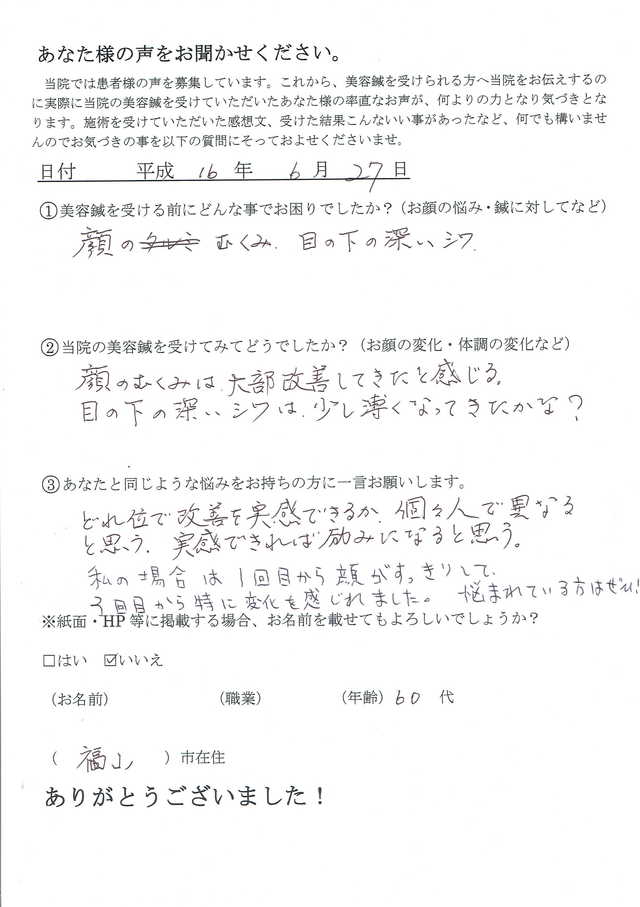 あなた様の声をお聞かせください。
当院では患者様の声を募集しています。これから、美容鍼を受けられる方へ当院をお伝えするの
に実際に当院の美容鍼を受けていただいたあなた様の率直なお声が、何よりの力となり気づきとな
ります。施術を受けていただいた感想文、受けた結果こんないい事があったなど、何でも構いませ
んのでお気づきの事を以下の質問にそっておよせくださいませ。
日付 平成 16 年 6 月 27 日
①美容鍼を受ける前にどんな事でお困りでしたか？（お顔の悩み・鍼に対してなど）
顔の むくみ、目の下の深いシワ
②当院の美容鍼を受けてみてどうでしたか？（お顔の変化・体調の変化など）
顔のむくみは、大部改善してきたと感じる。
目の下の深いシワは、少し薄くなってきたかな？
③あなたと同じような悩みをお持ちの方に一言お願いします。
どれ位で改善を実感できるか、個々人で異なる
と思う、実感できれば励みになると思う。
私の場合は1回目から顔がすっきりして、
3回目から特に変化を感じれました。 悩まれている方はぜひ!
※紙面・HP 等に掲載する場合、お名前を載せてもよろしいでしょうか？
□はい ☑いいえ
（お名前） （職業） （年齢）60 代
（ 福山 ）市在住
ありがとうございました！